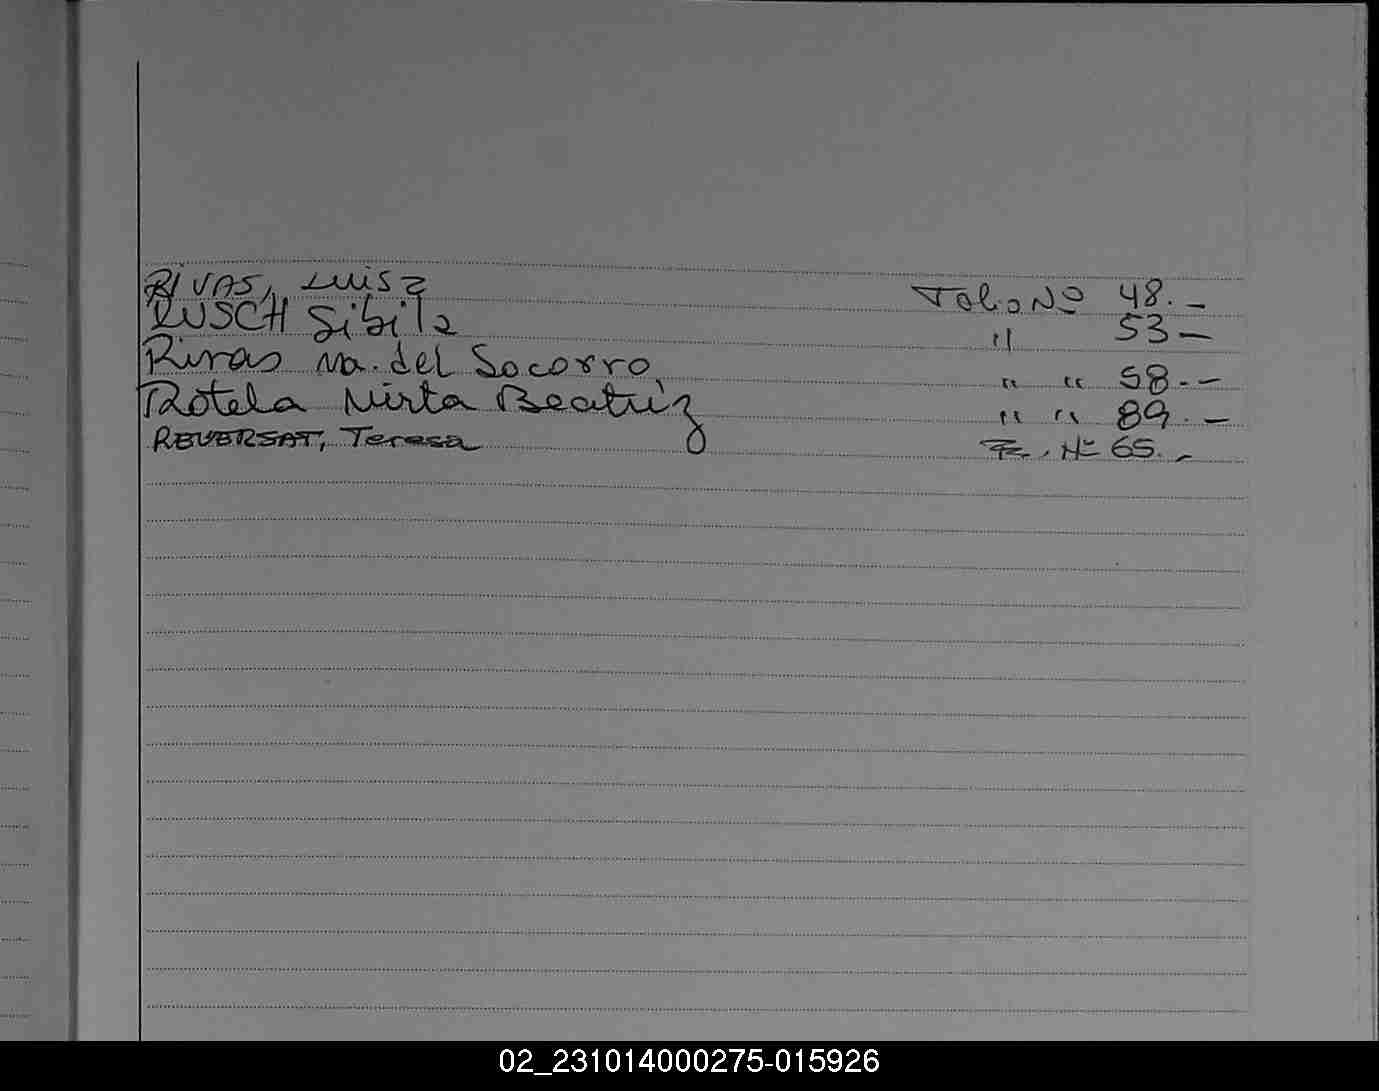 RIVAS, Luisa Folio Nº 48.-
RUSCH Sibila " 53-
Rivas Ma. del Socorro, " " 58.-
Rotela Mirta Beatriz " " 89.-
REVERSAT, Teresa Nº 65.-
02_231014000275-015926